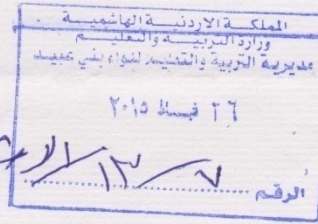 المملكة الاردنية الهاشمية
وزارة التربية والتعليم
مديرية التربية والتعليم للواء بني عبيد
٢٦ شباط ٢٠١٥
الرقم